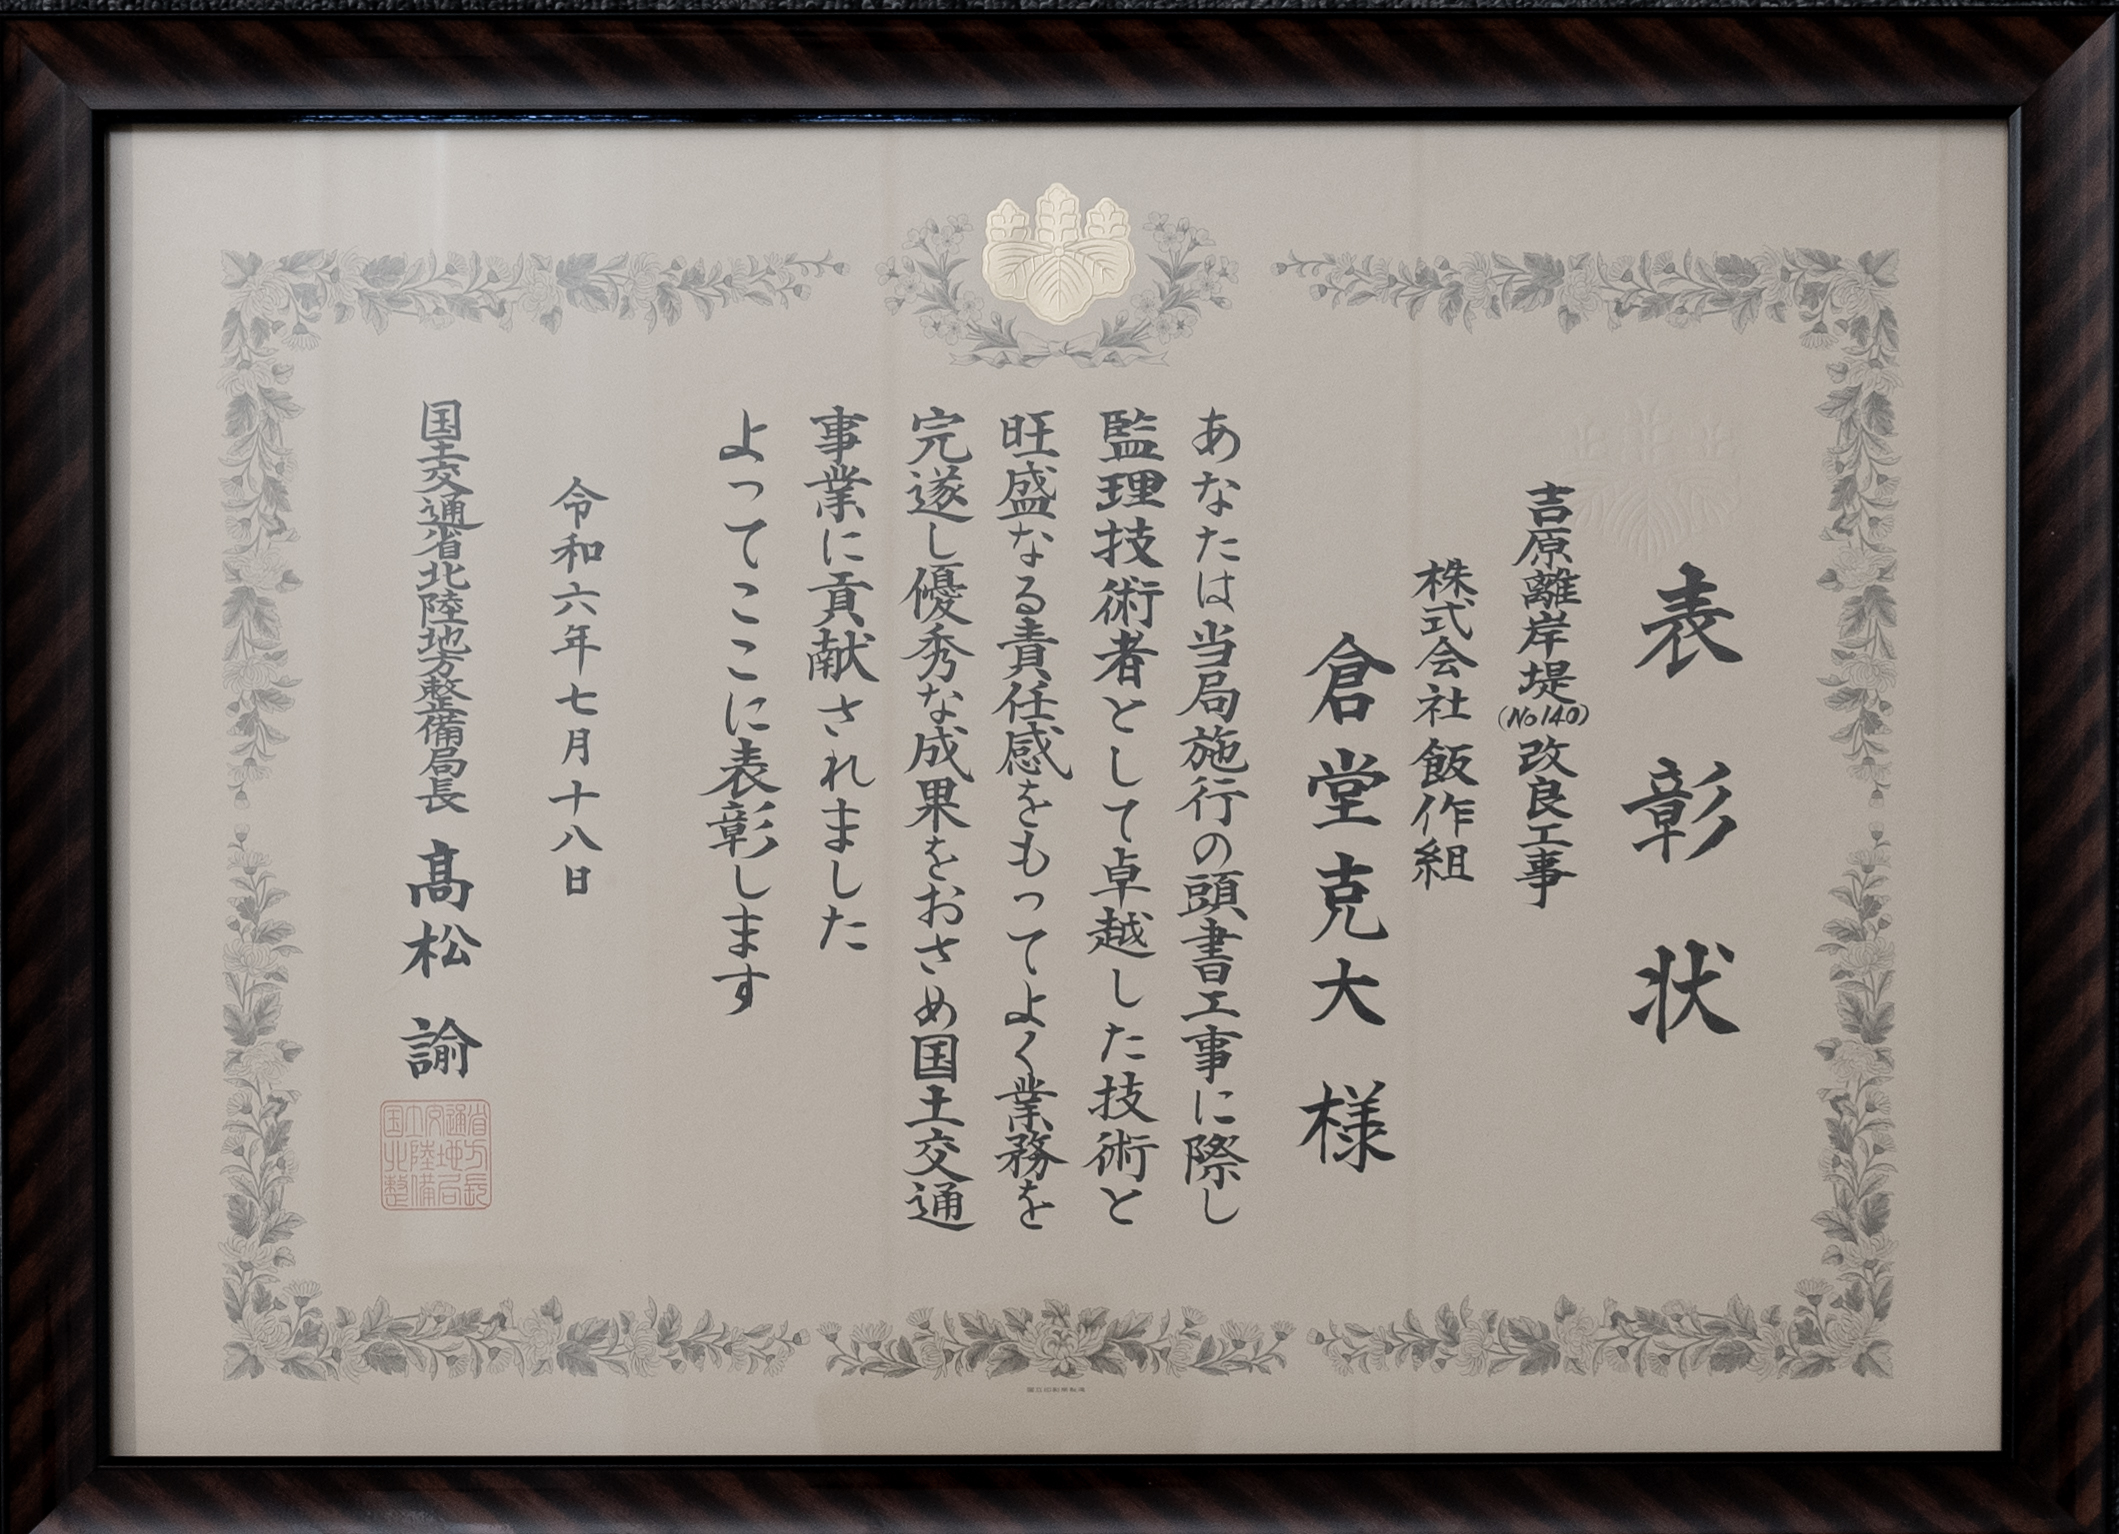 表彰状
吉原離岸堤(No140)改良工事
株式会社 飯作組
倉堂克大 様
あなたは当局施行の頭書工事に際し
監理技術者として卓越した技術と
旺盛なる責任感をもってよく業務を
完遂し優秀な成果をおさめ国土交通
事業に貢献されました
よってここに表彰します
令和六年七月十八日
国土交通省北陸地方整備局長 髙松 諭
国土交通省
北陸地方
整備局長